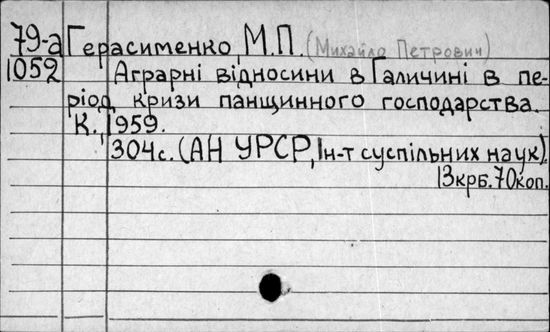 79-а Герасименко, М.П. (Михайло Петрович)
1052 Аграрні відносини в Галичині в пе-
ріод кризи панщинного господарства.
К., 1959.
304с. (АН УРСР, Ін-т суспільних наук).
13крб. 70коп.